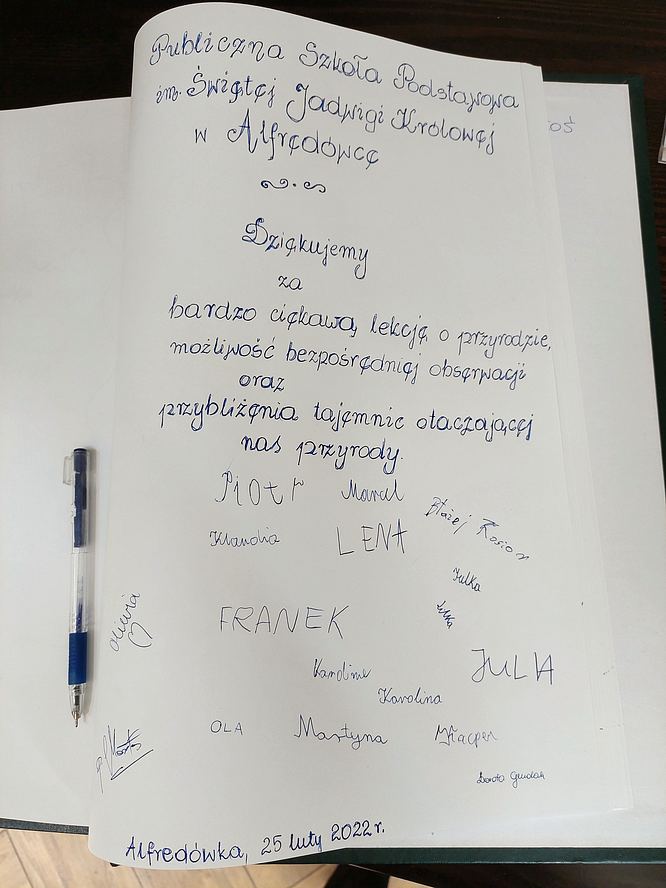 Publiczna Szkoła Podstawowa
im. Świętej Jadwigi Królowej
w Alfredówce
Dziękujemy
za
bardzo ciekawą lekcję o przyrodzie,
możliwość bezpośredniej obserwacji
oraz
przybliżenia tajemnic otaczającej
nas przyrody.
Piotr Marcel
Błażej
Klaudia LENA
Julka
Oliwia
FRANEK
JULIA
Karolina
OLA Martyna Kacper
Dorota
Alfredówka, 25 luty 2022 r.